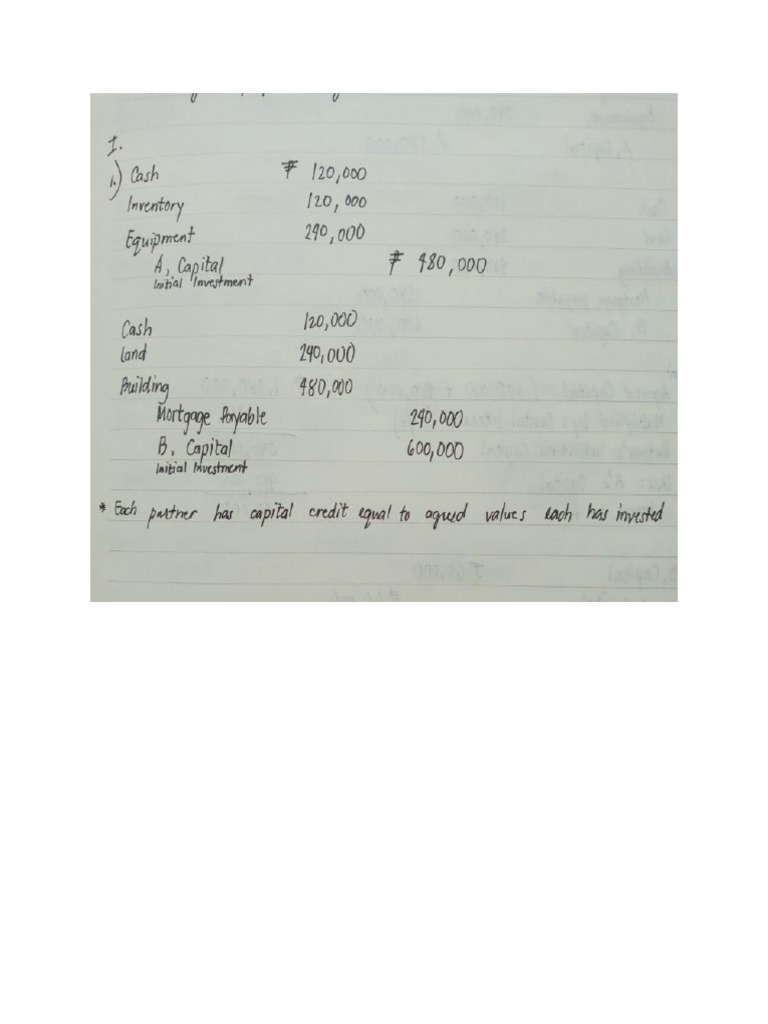 I.
1.) Cash ₱ 120,000
Inventory 120,000
Equipment 240,000
A, Capital ₱ 480,000
Initial Investment
Cash 120,000
land 240,000
Building 480,000
Mortgage Payable 240,000
B, Capital 600,000
Initial Investment
* Each partner has capital credit equal to agreed values each has invested